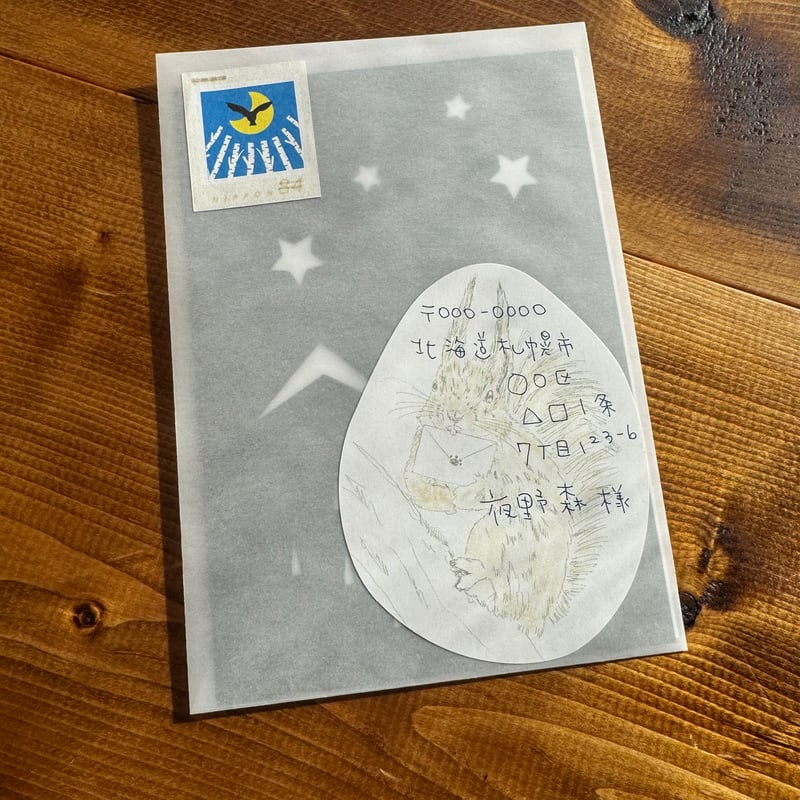 NIPPON 84
〒000-0000
北海道札幌市
○○区
△□1条
7丁目123-6
夜野森様